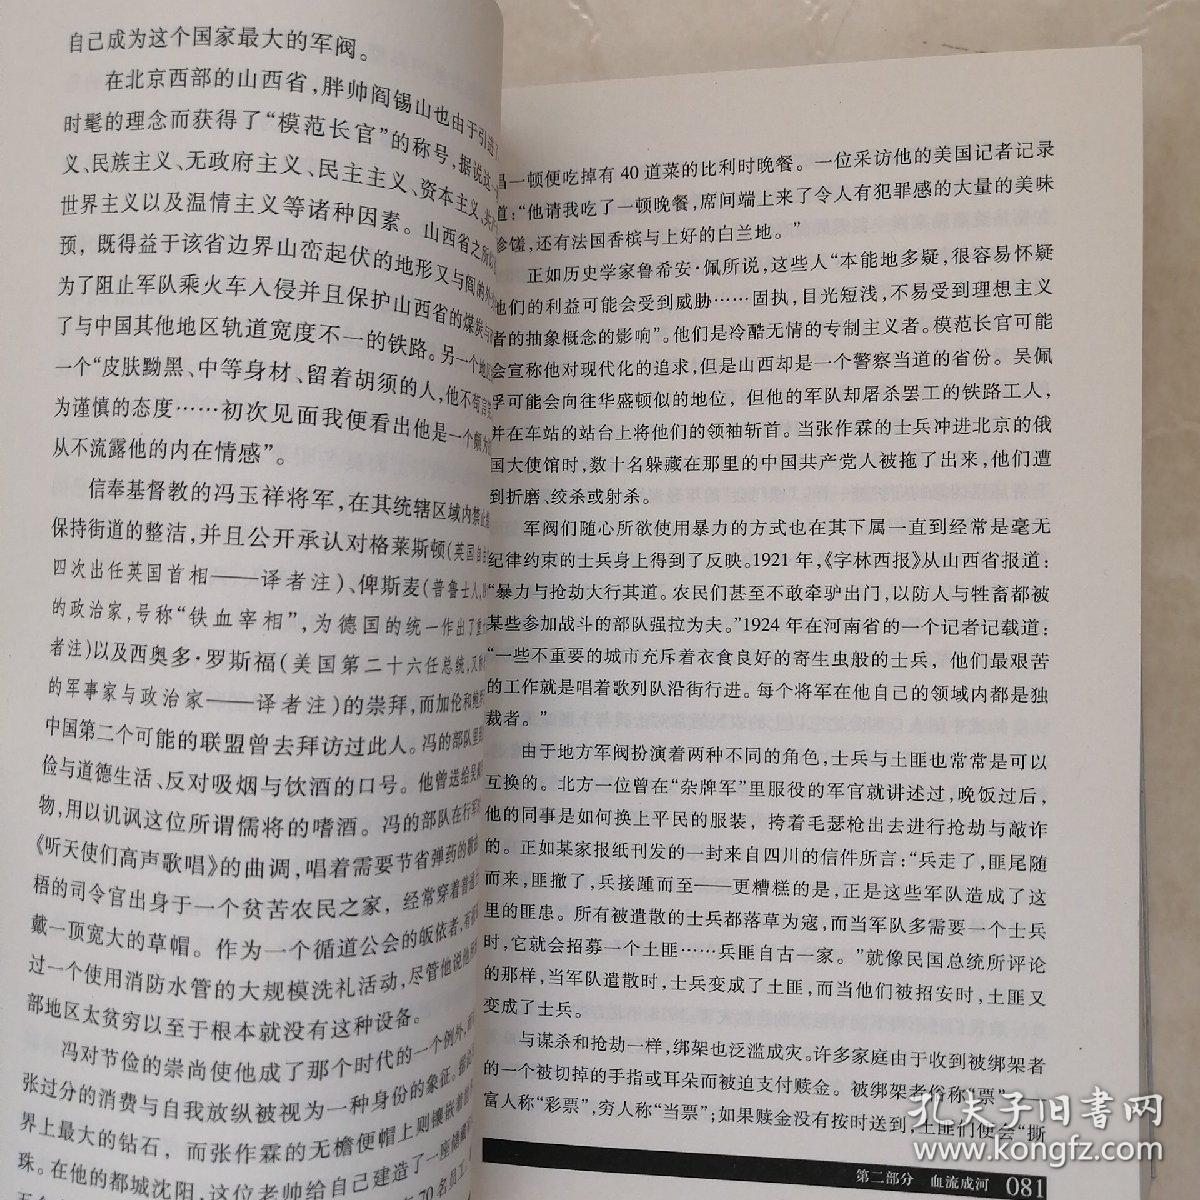 自己成为这个国家最大的军阀。
在北京西部的山西省，胖帅阎锡山也由于引进
时髦的理念而获得了“模范长官”的称号，据说这
义、民族主义、无政府主义、民主主义、资本主义、共产
世界主义以及温情主义等诸种因素。山西省之所以
预，既得益于该省边界山峦起伏的地形又与阎
为了阻止军队乘火车入侵并且保护山西省的煤炭
了与中国其他地区轨道宽度不一的铁路。另一个
一个“皮肤黝黑、中等身材、留着胡须的人，他不苟言
为谨慎的态度……初次见面我便看出他是一个
从不流露他的内在情感”。
信奉基督教的冯玉祥将军，在其统辖区域内禁
保持街道的整洁，并且公开承认对格莱斯顿（英国
四次出任英国首相——译者注）、俾斯麦（普鲁士人
的政治家，号称“铁血宰相”，为德国的统一作出了重
者注）以及西奥多·罗斯福（美国第二十六任总统，又
的军事家与政治家——译者注）的崇拜，而加伦和鲍
中国第二个可能的联盟曾去拜访过此人。冯的部队里
俭与道德生活、反对吸烟与饮酒的口号。他曾送给吴
物，用以讥讽这位所谓儒将的嗜酒。冯的部队在行军
《听天使们高声歌唱》的曲调，唱着需要节省弹药的歌
梧的司令官出身于一个贫苦农民之家，经常穿着普通
戴一顶宽大的草帽。作为一个循道公会的皈依者，有
过一个使用消防水管的大规模洗礼活动，尽管他说他
部地区太贫穷以至于根本就没有这种设备。
冯对节俭的崇尚使他成了那个时代的一个例外，
张过分的消费与自我放纵被视为一种身份的象征。据说
界上最大的钻石，而张作霖的无檐便帽上则镶嵌着
珠。在他的都城沈阳，这位老帅给自己建造了一座
70名员工
昌一顿便吃掉有 40 道菜的比利时晚餐。一位采访他的美国记者记录
道：“他请我吃了一顿晚餐，席间端上来了令人有犯罪感的大量的美味
珍馐，还有法国香槟与上好的白兰地。”
正如历史学家鲁希安·佩所说，这些人“本能地多疑，很容易怀疑
他们的利益可能会受到威胁……固执，目光短浅，不易受到理想主义
者的抽象概念的影响”。他们是冷酷无情的专制主义者。模范长官可能
会宣称他对现代化的追求，但是山西却是一个警察当道的省份。吴佩
孚可能会向往华盛顿似的地位，但他的军队却屠杀罢工的铁路工人，
并在车站的站台上将他们的领袖斩首。当张作霖的士兵冲进北京的俄
国大使馆时，数十名躲藏在那里的中国共产党人被拖了出来，他们遭
到折磨、绞杀或射杀。
军阀们随心所欲使用暴力的方式也在其下属一直到经常是毫无
纪律约束的士兵身上得到了反映。1921 年，《字林西报》从山西省报道：
“暴力与抢劫大行其道。农民们甚至不敢牵驴出门，以防人与牲畜都被
某些参加战斗的部队强拉为夫。”1924 年在河南省的一个记者记载道：
“一些不重要的城市充斥着衣食良好的寄生虫般的士兵，他们最艰苦
的工作就是唱着歌列队沿街行进。每个将军在他自己的领域内都是独
裁者。”
由于地方军阀扮演着两种不同的角色，士兵与土匪也常常是可以
互换的。北方一位曾在“杂牌军”里服役的军官就讲述过，晚饭过后，
他的同事是如何换上平民的服装，挎着毛瑟枪出去进行抢劫与敲诈
的。正如某家报纸刊发的一封来自四川的信件所言：“兵走了，匪尾随
而来，匪撤了，兵接踵而至——更糟糕的是，正是这些军队造成了这
里的匪患。所有被遣散的士兵都落草为寇，而当军队多需要一个士兵
时，它就会招募一个土匪……兵匪自古一家。”就像民国总统所评论
的那样，当军队遣散时，士兵变成了土匪，而当他们被招安时，土匪又
变成了士兵。
与谋杀和抢劫一样，绑架也泛滥成灾。许多家庭由于收到被绑架者
的一个被切掉的手指或耳朵而被迫支付赎金。被绑架者俗称“票”——
富人称“彩票”，穷人称“当票”；如果赎金没有按时送到，土匪们便会“撕
第二部分 血流成河 081
孔夫子旧书网
www.kongfz.com